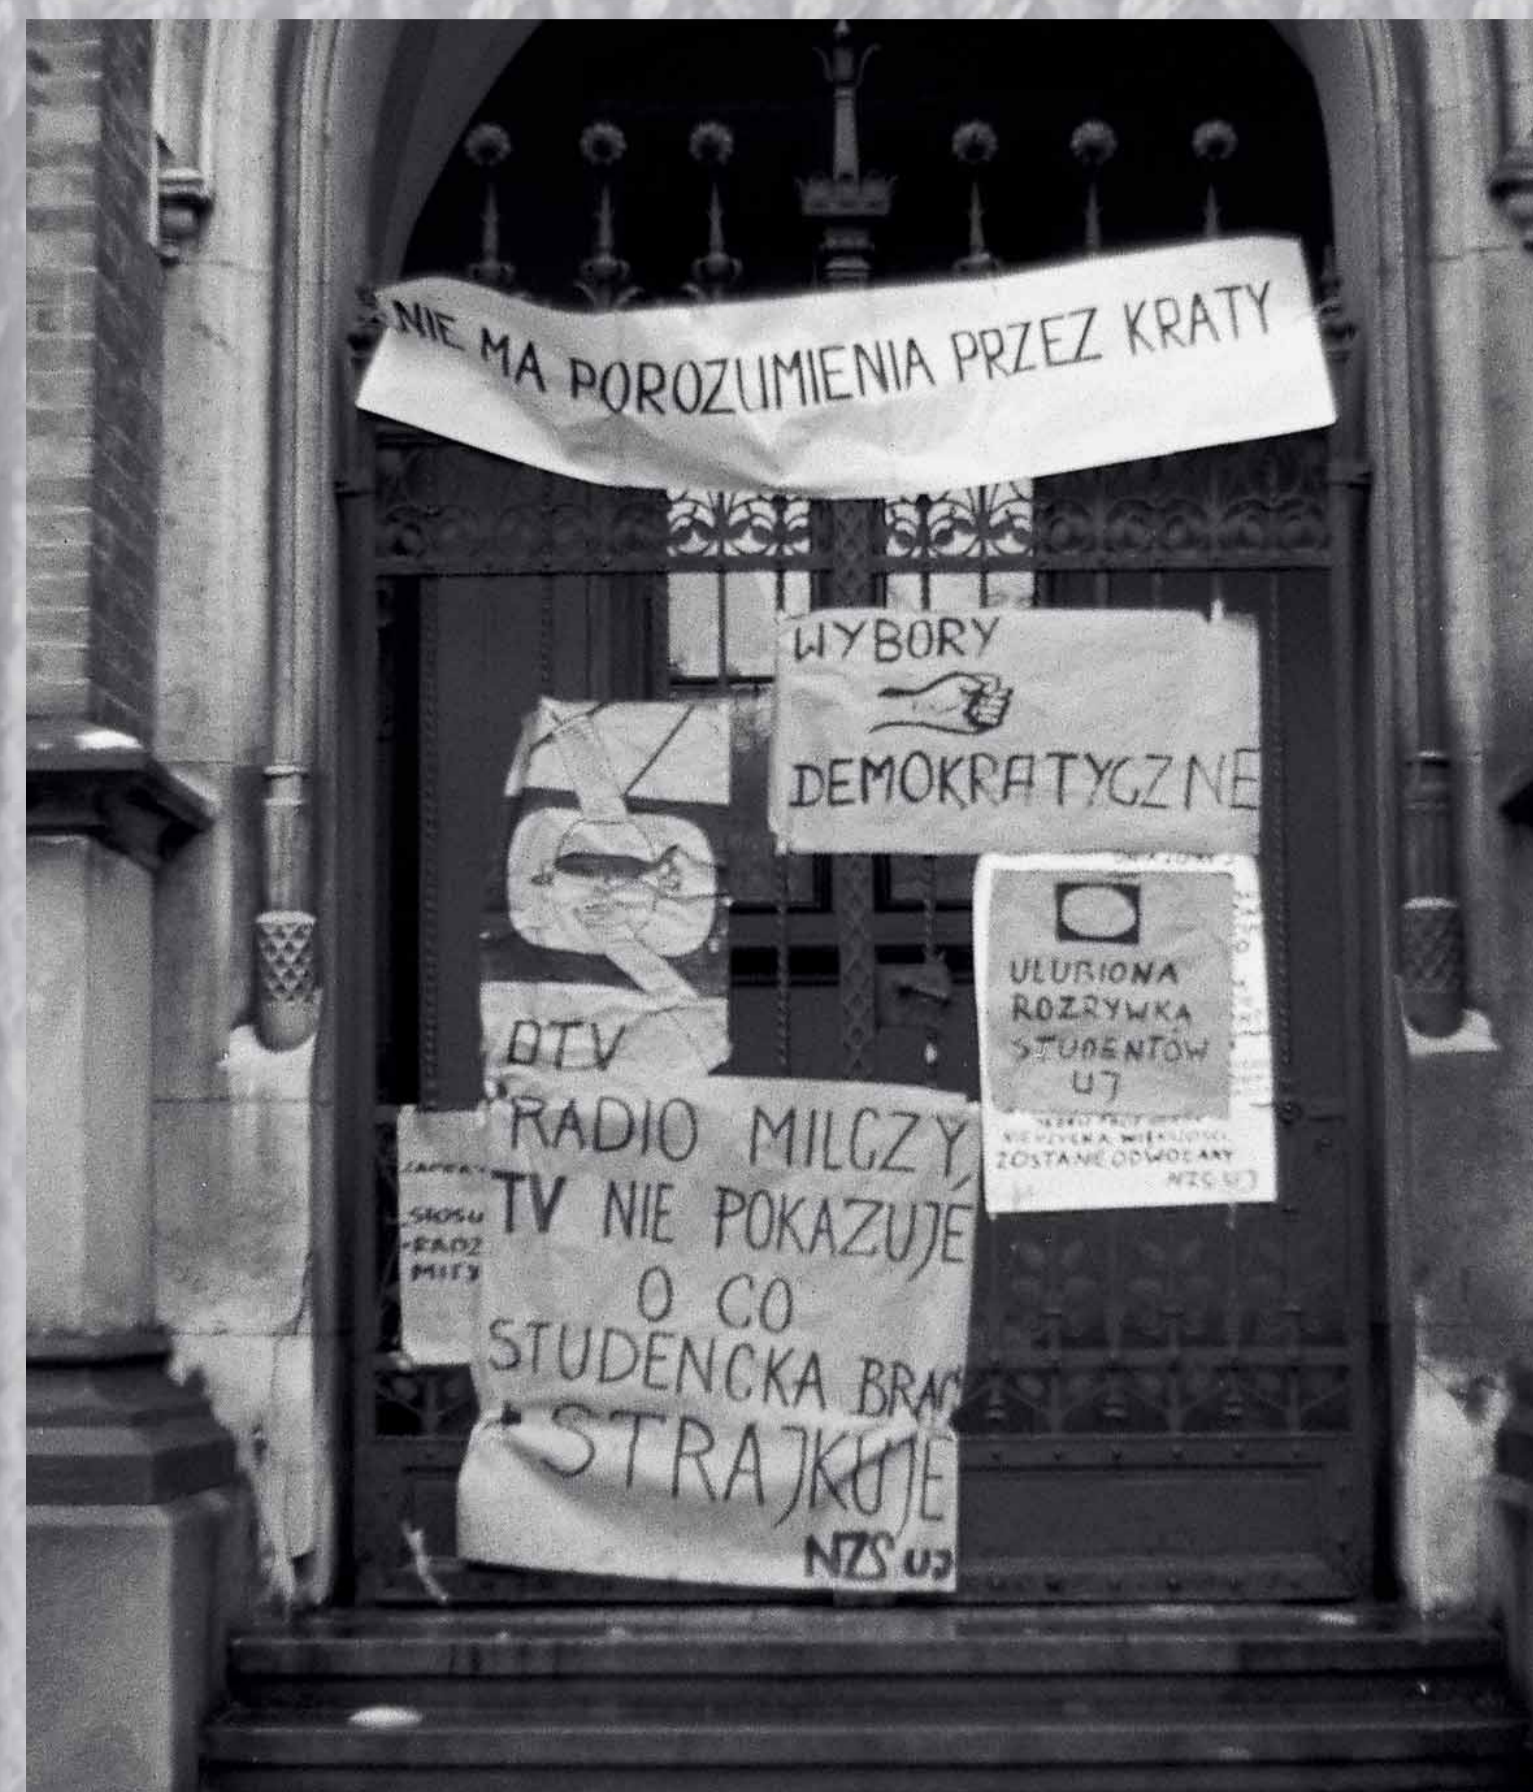 NIE MA POROZUMIENIA PRZEZ KRATY
WYBORY
DEMOKRATYCZNE
DTV
ULUBIONA
ROZRYWKA
STUDENTÓW
UJ
ZOSTANIE ODWOŁANY
NZS UJ
RADIO MILCZY,
TV NIE POKAZUJE
O CO
STUDENCKA BRAĆ
STRAJKUJE
NZS UJ